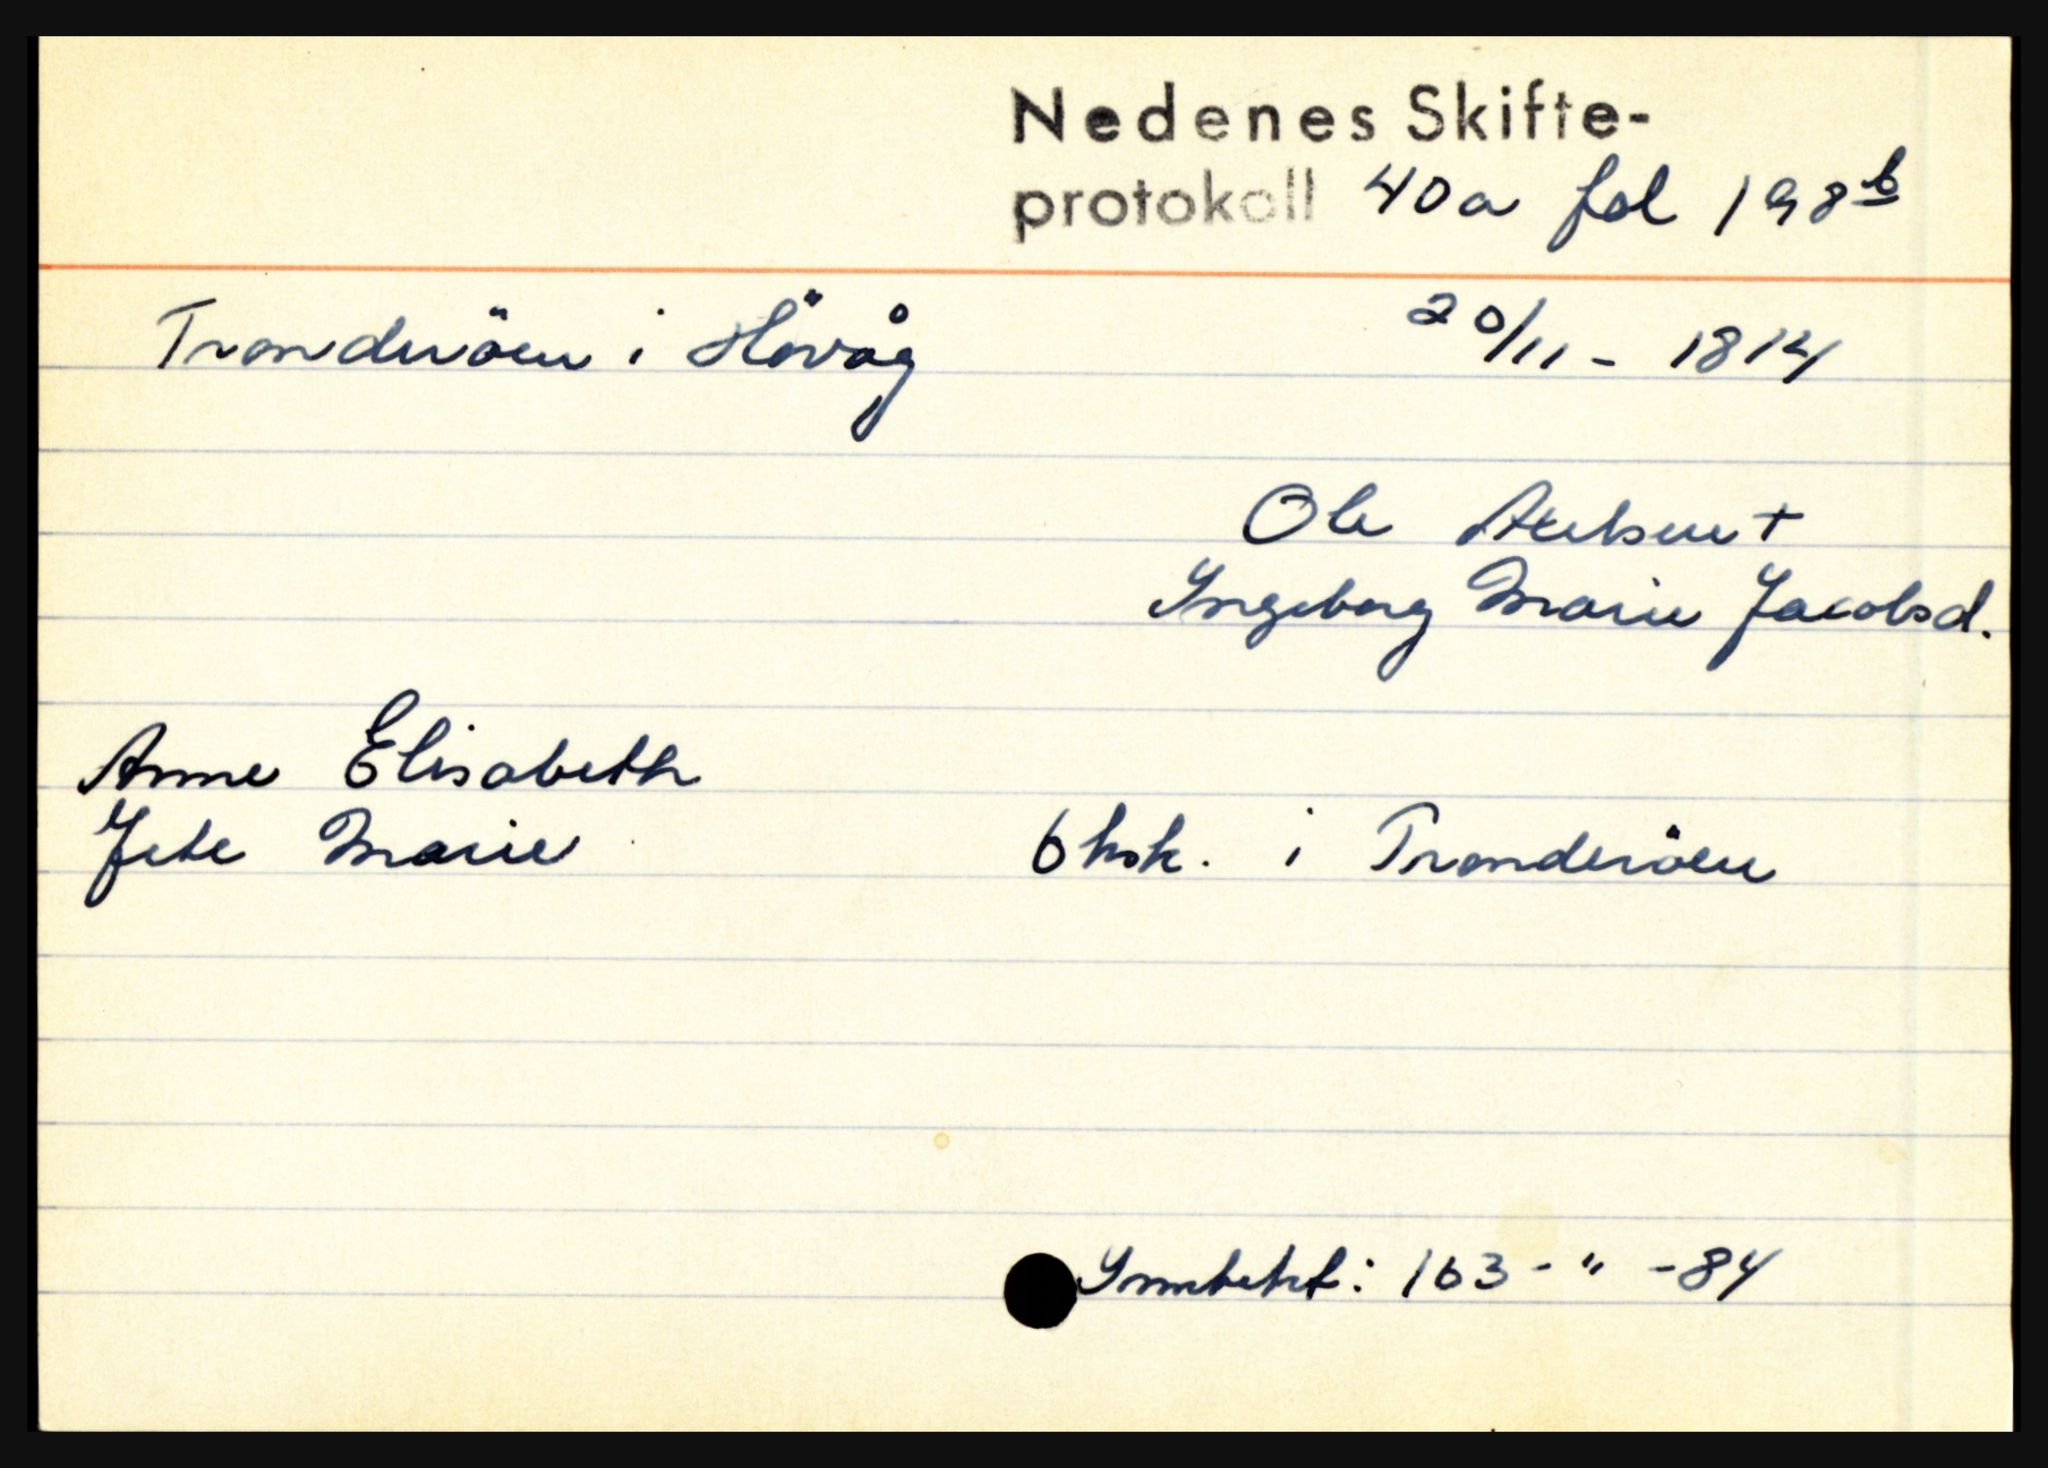 Nedenes Skifte-
protokoll 40a fol 198b
Tronderöen i Hövåg 20/11 - 1814
Ole Axelsen +
Ingeborg Marie Jacobsd.
Anne Elisabeth
Jete Marie 6 hsk. i Tronderöen
: 163 - " - 84